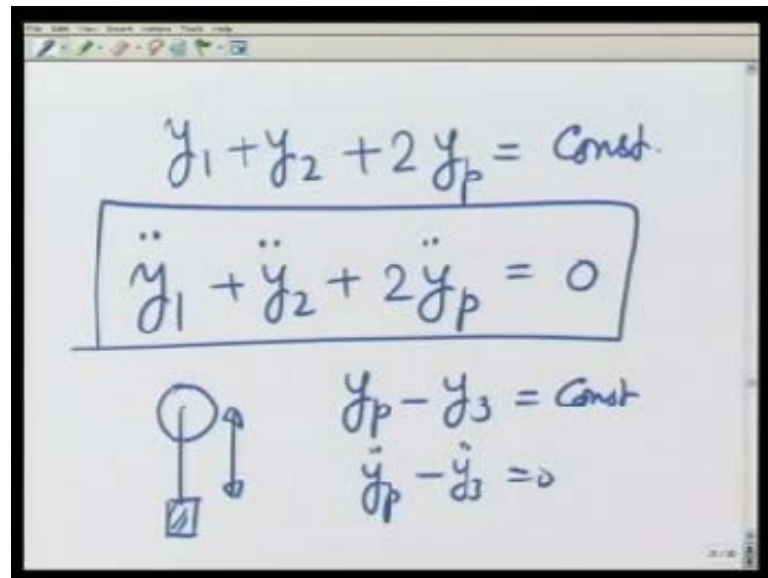 File Edit View Insert Actions Tools Help
y₁ + y₂ + 2y_p = Const.
ÿ₁ + ÿ₂ + 2ÿ_p = 0
y_p - y₃ = Const
ÿ_p - ÿ₃ = 0